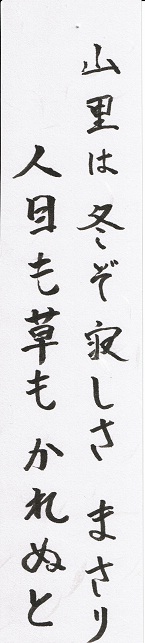 山里は冬ぞ寂しさ まさり
人目も草も かれぬと